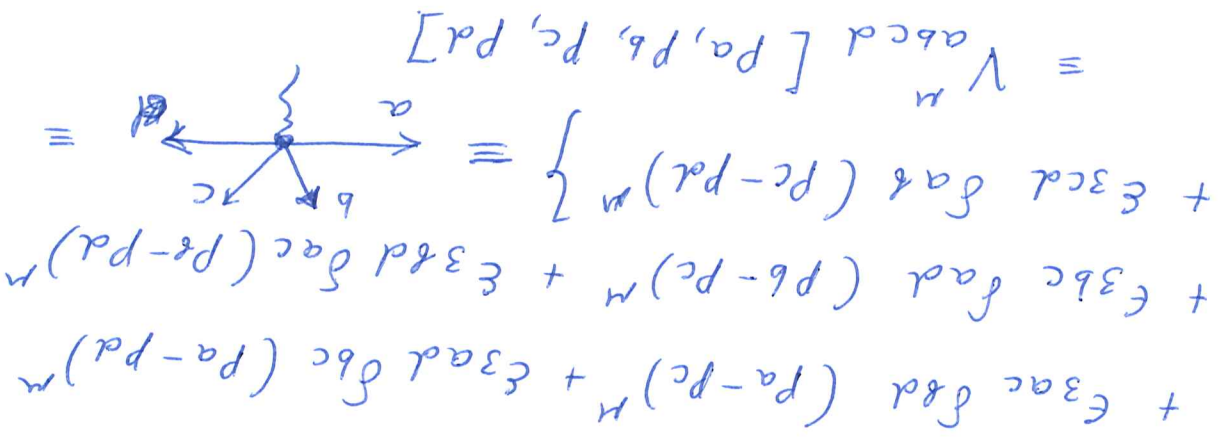 + ε3ac δbd (pa - pc)^μ + ε3ad δbc (pa - pd)^μ
+ ε3bc δad (pb - pc)^μ + ε3bd δac (pb - pd)^μ
+ ε3cd δab (pc - pd)^μ } ≡ a b c d ≡
≡ V^μ abcd [pa, pb, pc, pd]